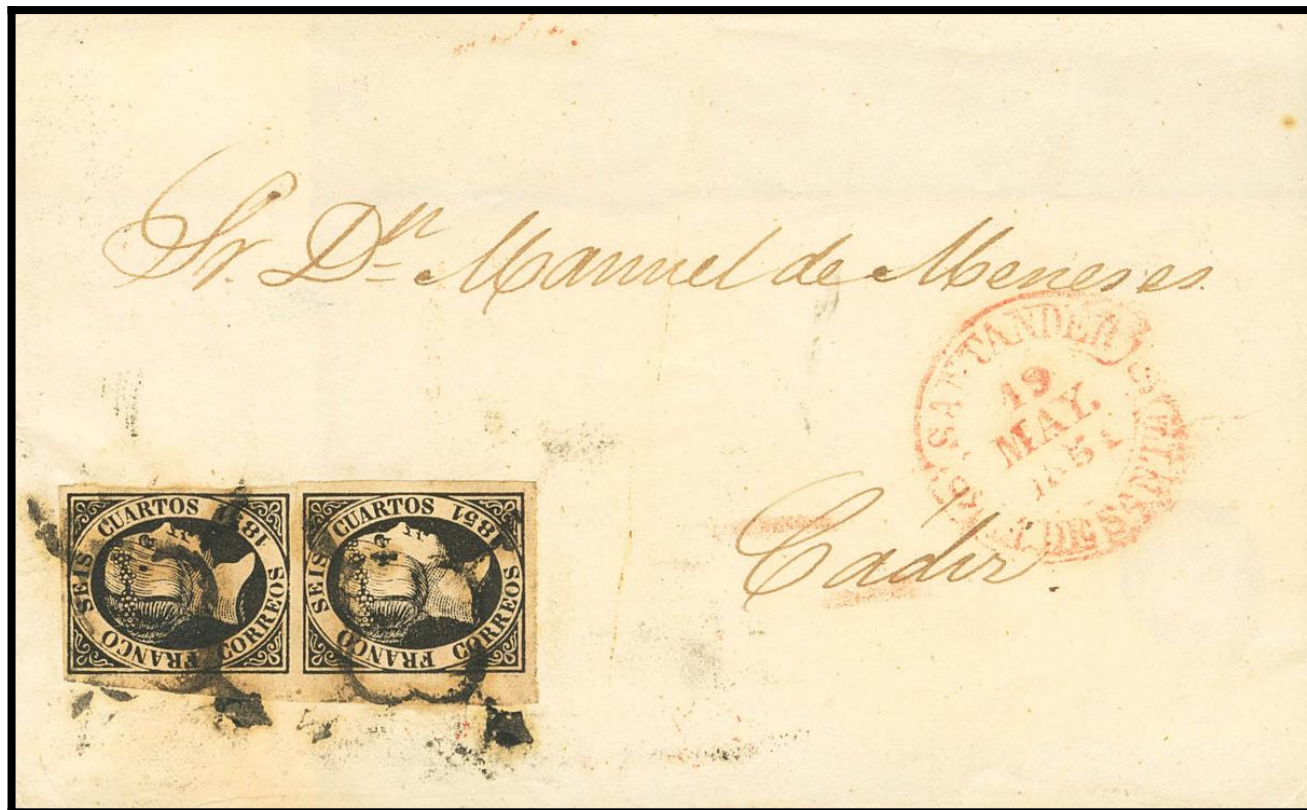 Sr. Dn. Manuel de Meneses.
SANTANDER
19
MAY.
1851
Cadiz.
SEIS CUARTOS 1851
FRANCO CORREOS
SEIS CUARTOS 1851
FRANCO CORREOS